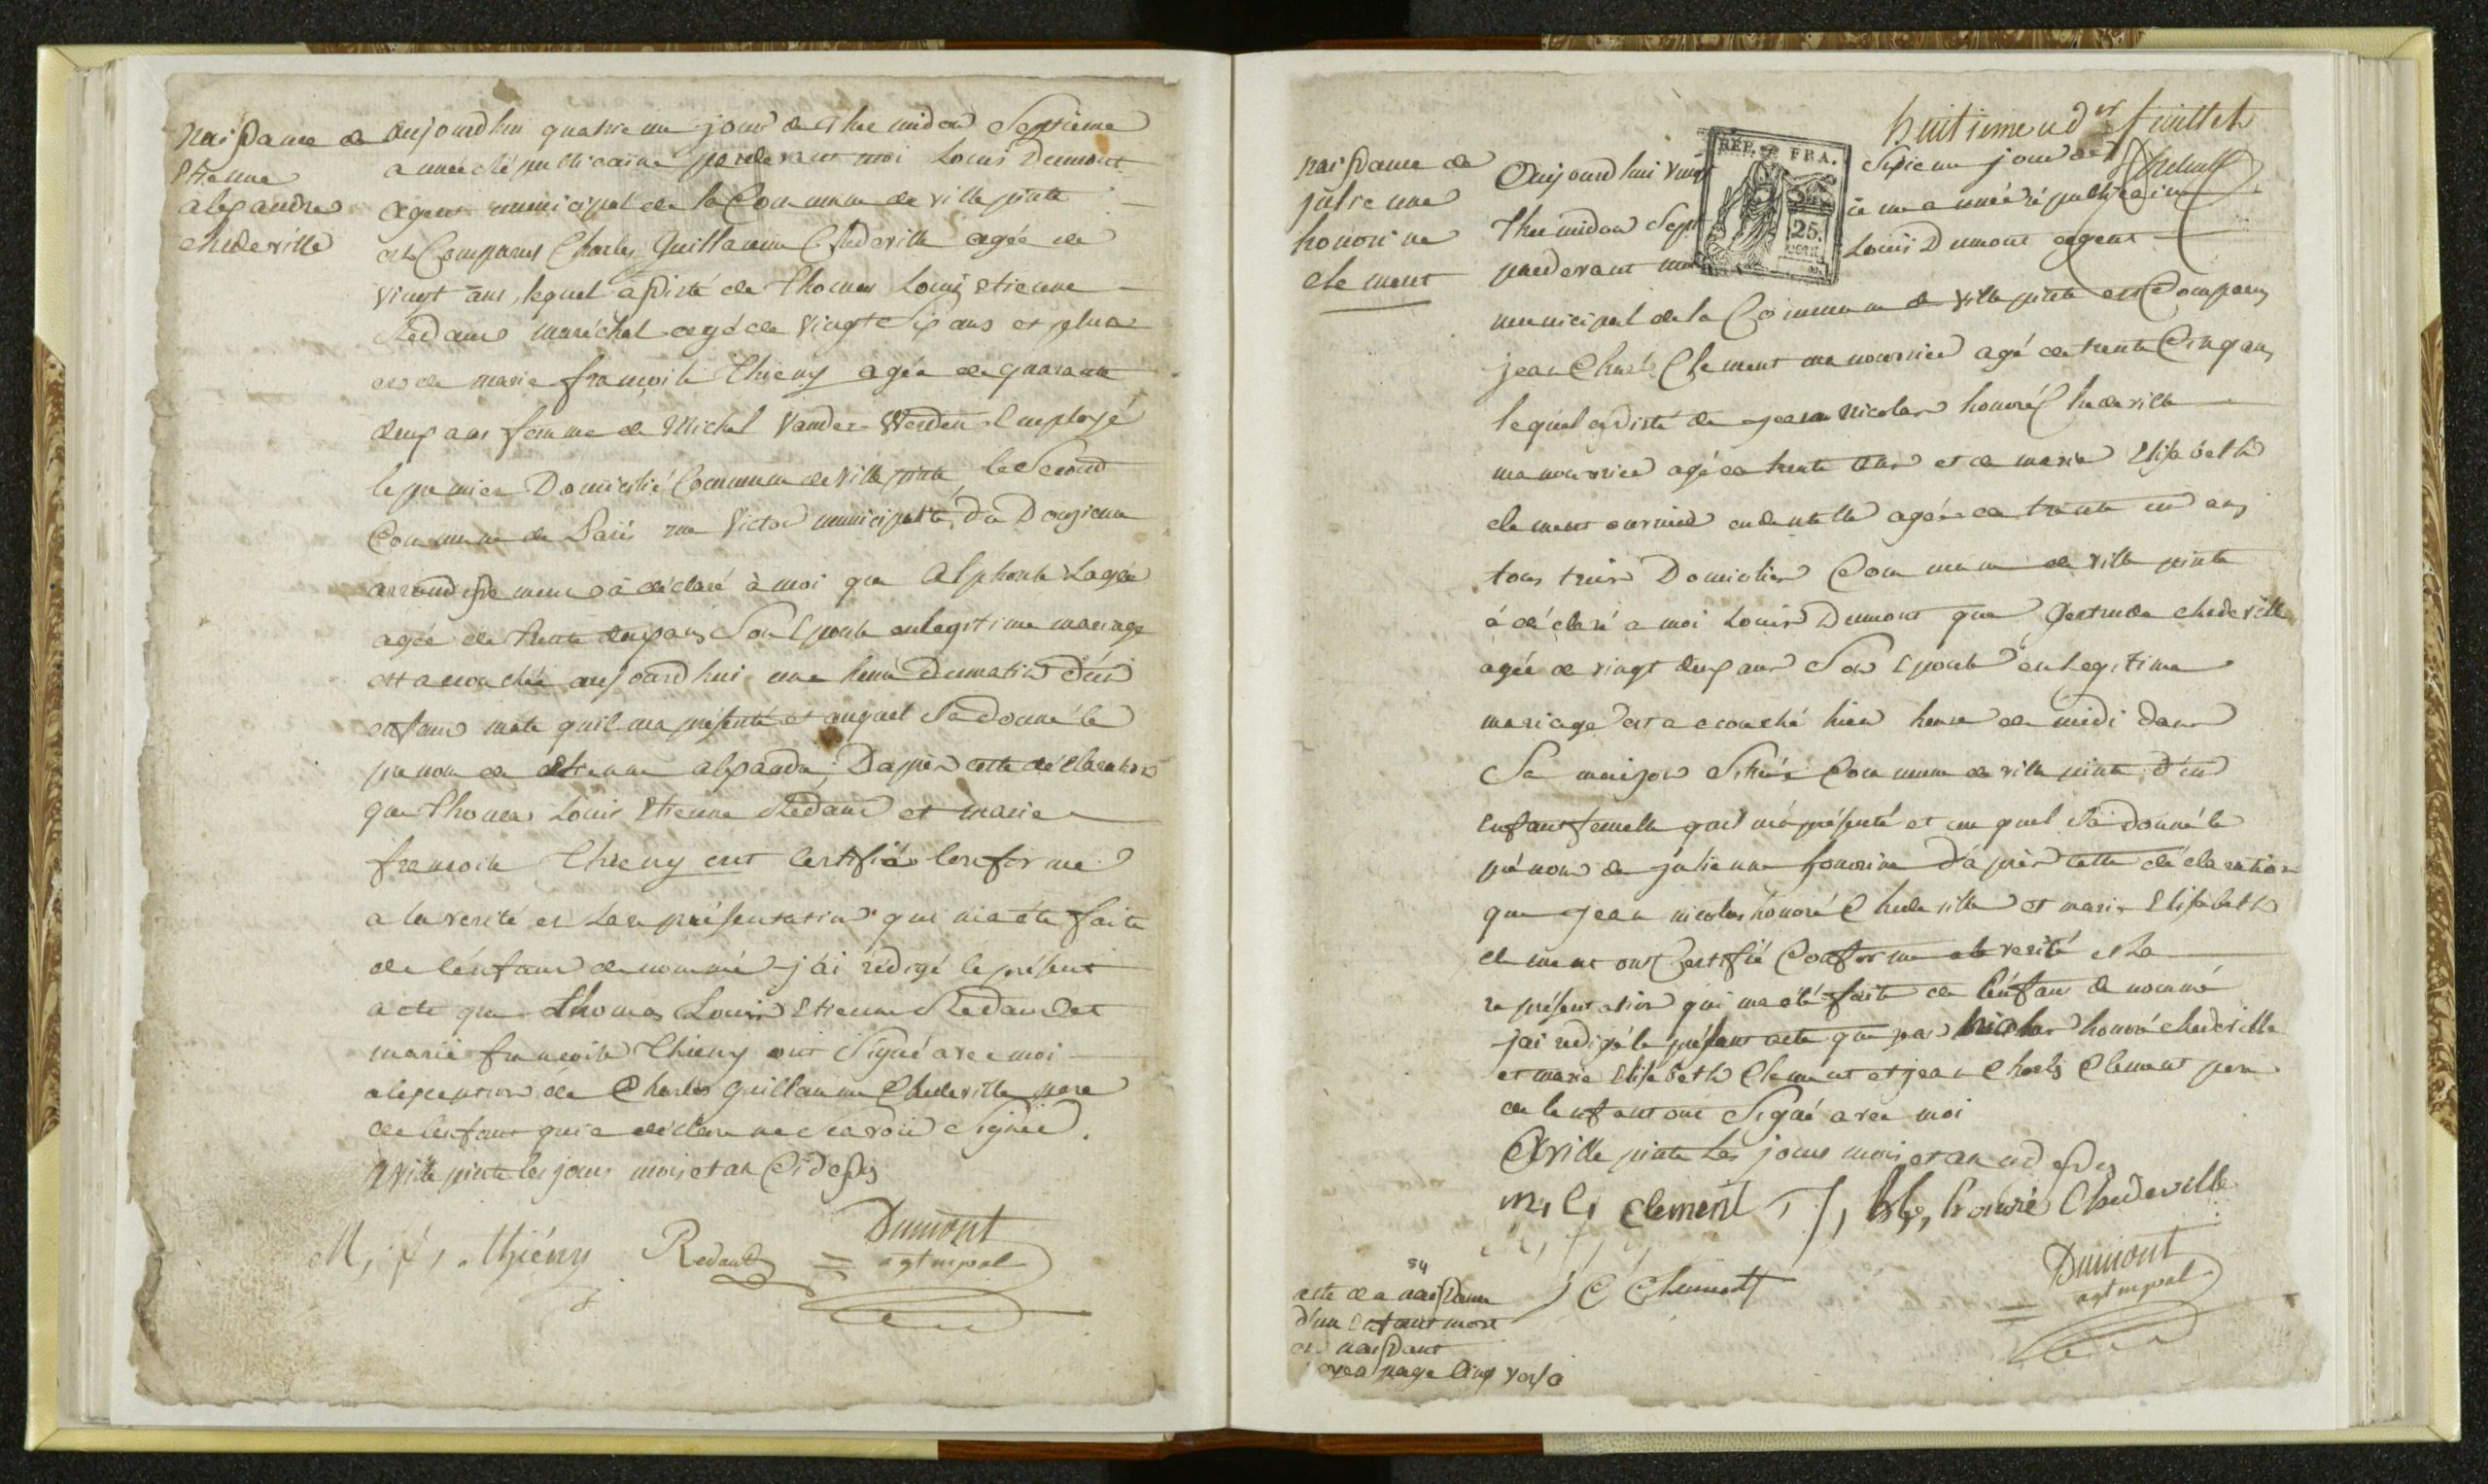 Naissance de
Etienne
alexandre
chedeville
aujourdhui quatrieme jour de Thermidor Septieme
année républicaine pardevant moi Louis Dumont
agent municipal de la Commune de villepinte
est Comparus Charles Guillaume Chedeville agée de
vingt ans, lequel assisté de Thomas Louis etienne
Redaud maréchal agé de vingt Six ans et plus
et de marie françoise Thieny agée de quarante
deux ans femme de Michel Vander-Werden Employé
le premier Domicilié Commune de villepinte, le Second
Commune de Paris rue Victor municipalité du Douzieme
arrondissement a déclaré à moi que Alphonse Lagée
agée de trente deux ans Son Epouse en legitime mariage
est accouchée aujourdhui une heure Dumatin d'un
enfans male quil ma présenté et auquel Sa donné le
prenom de Etienne alexandre, Dapres cette déclaration
que Thomas Louis Etienne Redaud et marie
francoise Thieny ont Certifiés Conforme
a la verité et La représentation qui m'a été faite
de l'énfans denommé j'ai rédigé le présent
acte que Thomas Louis Etienne Redaud et
marie francoise Thieny ont Signé avec moi
alexception de Charles guillaume Chedeville pere
de lenfant qui a déclaré ne Scavoir Signer.
A villepinte les jours mois et an Cidessus
M, f, Thiény Redaud Dumont
agt mpal
huitieme
Naissance de
julienne
honorine
clement
Aujourdhui vingt Sixieme jour de
REP. FRA.
25.
Thermidor Sept ieme année républicaine
pardevant moi Louis Dumont agent
municipal de la Commune de villepinte est Comparus
jean Charles Clement manouvrier agé de trente Cinq ans
lequel assisté de jean Nicolas honoré Chedeville
manouvrier agé de trente ans et de marie Elisabeth
clement ouvriere en dentelle agée de trente un ans
tous trois Domiciliés Commune de villepinte
á déclaré a moi Louis Dumont que Gertrude chedeville
agée de vingt deux ans Son Epouse en Legitime
mariage est accouché hier heure de midi dans
Sa maison Située Commune de villepinte d'un
Enfant femelle quil m'a présenté et au quel Sa donné le
prénom de julienne honorine d'après cette déclaration
que jean nicolas honoré Chedeville et marie Elisabeth
clement ont Certifié Conforme a la verité et La
représentation qui ma été faite de l'énfans denommé
j'ai redigé le présent acte que jean Nicolas honoré chedeville
et marie Elisabeth Clement et jean Charles Clement pere
de lenfant ont Signé avec moi
A villepinte Les jours mois et an cidessus
m, e, Clement honoré Chedeville
J C Clement Dumont
agt mpal
54
acte de naissance
d'un Enfant mort
en naissant
page cinq verso